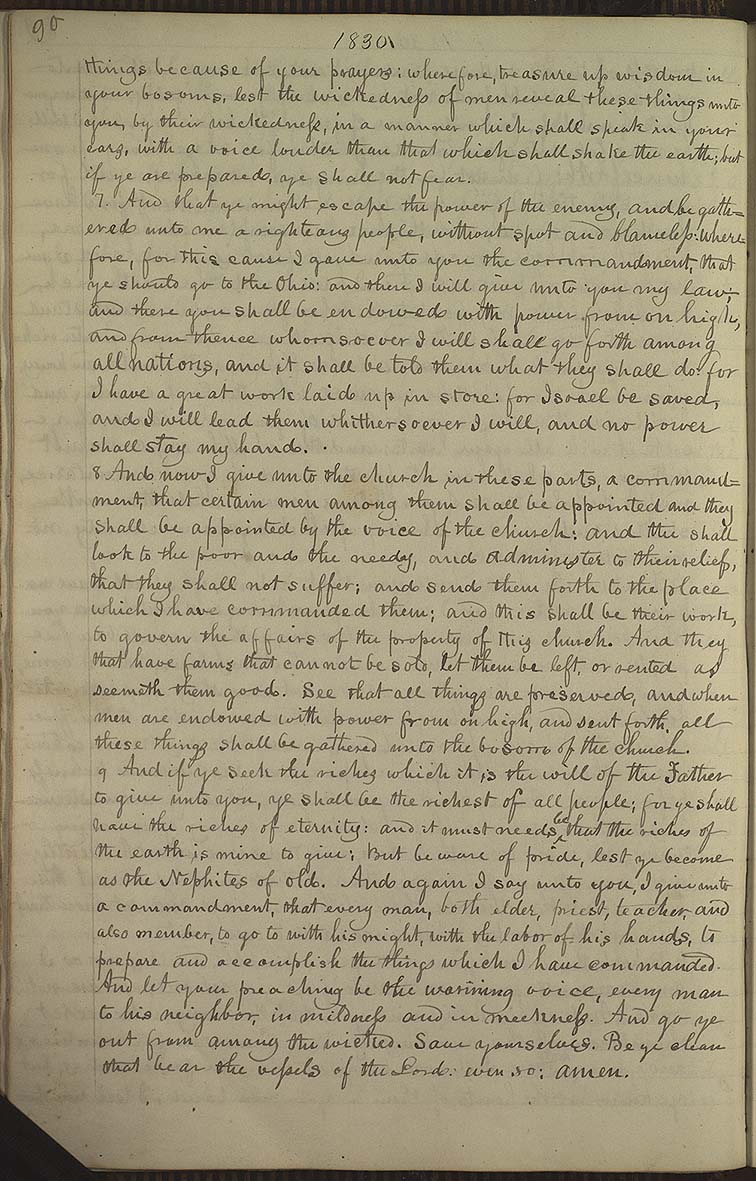 90
1830
things because of your prayers: wherefore, treasure up wisdom in
your bosoms, lest the wickedness of men reveal these things unto
you, by their wickedness, in a manner which shall speak in your
ears, with a voice louder than that which shall shake the earth; but
if ye are prepared, ye shall not fear.
7. And that ye might escape the power of the enemy, and be gath=
ered unto me a righteous people, without spot and blameless: where=
fore, for this cause I gave unto you the commandment, that
ye should go to the Ohio: and there I will give unto you my law;
and there you shall be endowed with power from on high,
and from thence whomsoever I will shall go forth among
all nations, and it shall be told them what they shall do: for
I have a great work laid up in store: for Israel be saved,
and I will lead them whithersoever I will, and no power
shall stay my hand.
8 And now I give unto the church in these parts, a command=
ment, that certain men among them shall be appointed and they
shall be appointed by the voice of the church; and the shall
look to the poor and the needy, and administer to their relief,
that they shall not suffer; and send them forth to the place
which I have commanded them; and this shall be their work,
to govern the affairs of the property of this church. And they
that have farms that cannot be sold, let them be left, or rented as
seemeth them good. See that all things are preserved, and when
men are endowed with power from on high, and sent forth, all
these things shall be gathered unto the bosom of the church.
9 And if ye seek the riches which it is the will of the Father
to give unto you, ye shall be the richest of all people; for ye shall
have the riches of eternity: and it must needs be that the riches of
the earth is mine to give; But beware of pride, lest ye become
as the Nephites of old. And again I say unto you, I give unto
a commandment, that every man, both elder, priest, teacher and
also member, to go to with his might, with the labor of his hands, to
prepare and accomplish the things which I have commanded.
And let your preaching be the warning voice, every man
to his neighbor, in mildness and in meekness. And go ye
out from among the wicked. Save yourselves. Be ye clean
that bear the vessels of the Lord: even so: amen.